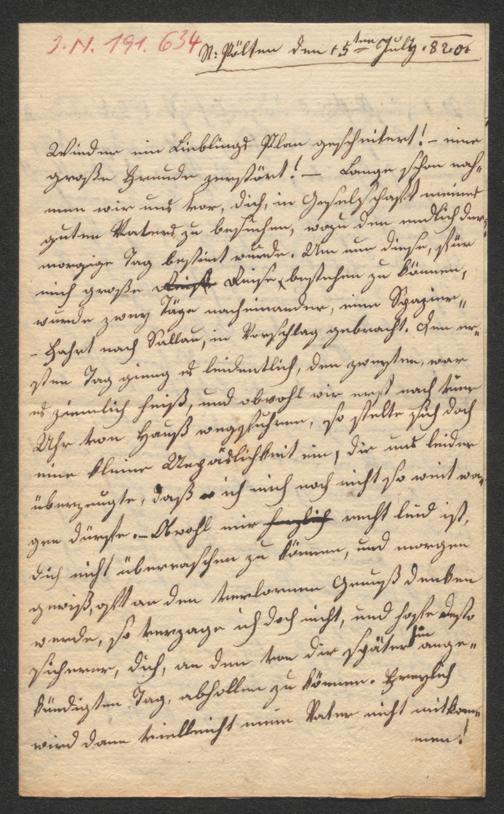 I. N. 191. 634
St: Pölten den 15ten July 1820.
Wieder ein Lieblings Plan gescheitert! – eine
große Freude zerstört! – Lange schon nah-
men wir uns vor, dich, in Gesellschafft meines
guten Vaters zu besuchen, wozu denn endlich der
morgige Tag bestimt wurde. Um nun diese, für
mich große Reise bestehen zu können,
wurde zwey Täge nacheinander, eine Spazier-
-Fahrt nach in Vorschlag gebracht. Den er-
sten Tag gieng es leidentlich, den zweyten, war
es ziemlich heiß, und obwohl wir erst nach
Uhr von Hauß wegfuhren, so stellte sich doch
eine kleine Unpäßlichkeit ein, die uns leider
überzeugte, daß ich mich noch nicht so weit wa-
gen dürfte. – Obwohl mir recht leid ist,
dich nicht überraschen zu können, und morgen
gewiß, oft an den verlornen Genuß denken
werde, so verzage ich doch nicht, und hoffe desto
sicherer, dich, an dem von dir späterhin ange-
kündigten Tag, abhollen zu können. Freylich
wird dann vielleicht mein Vater nicht mitkom-
men!